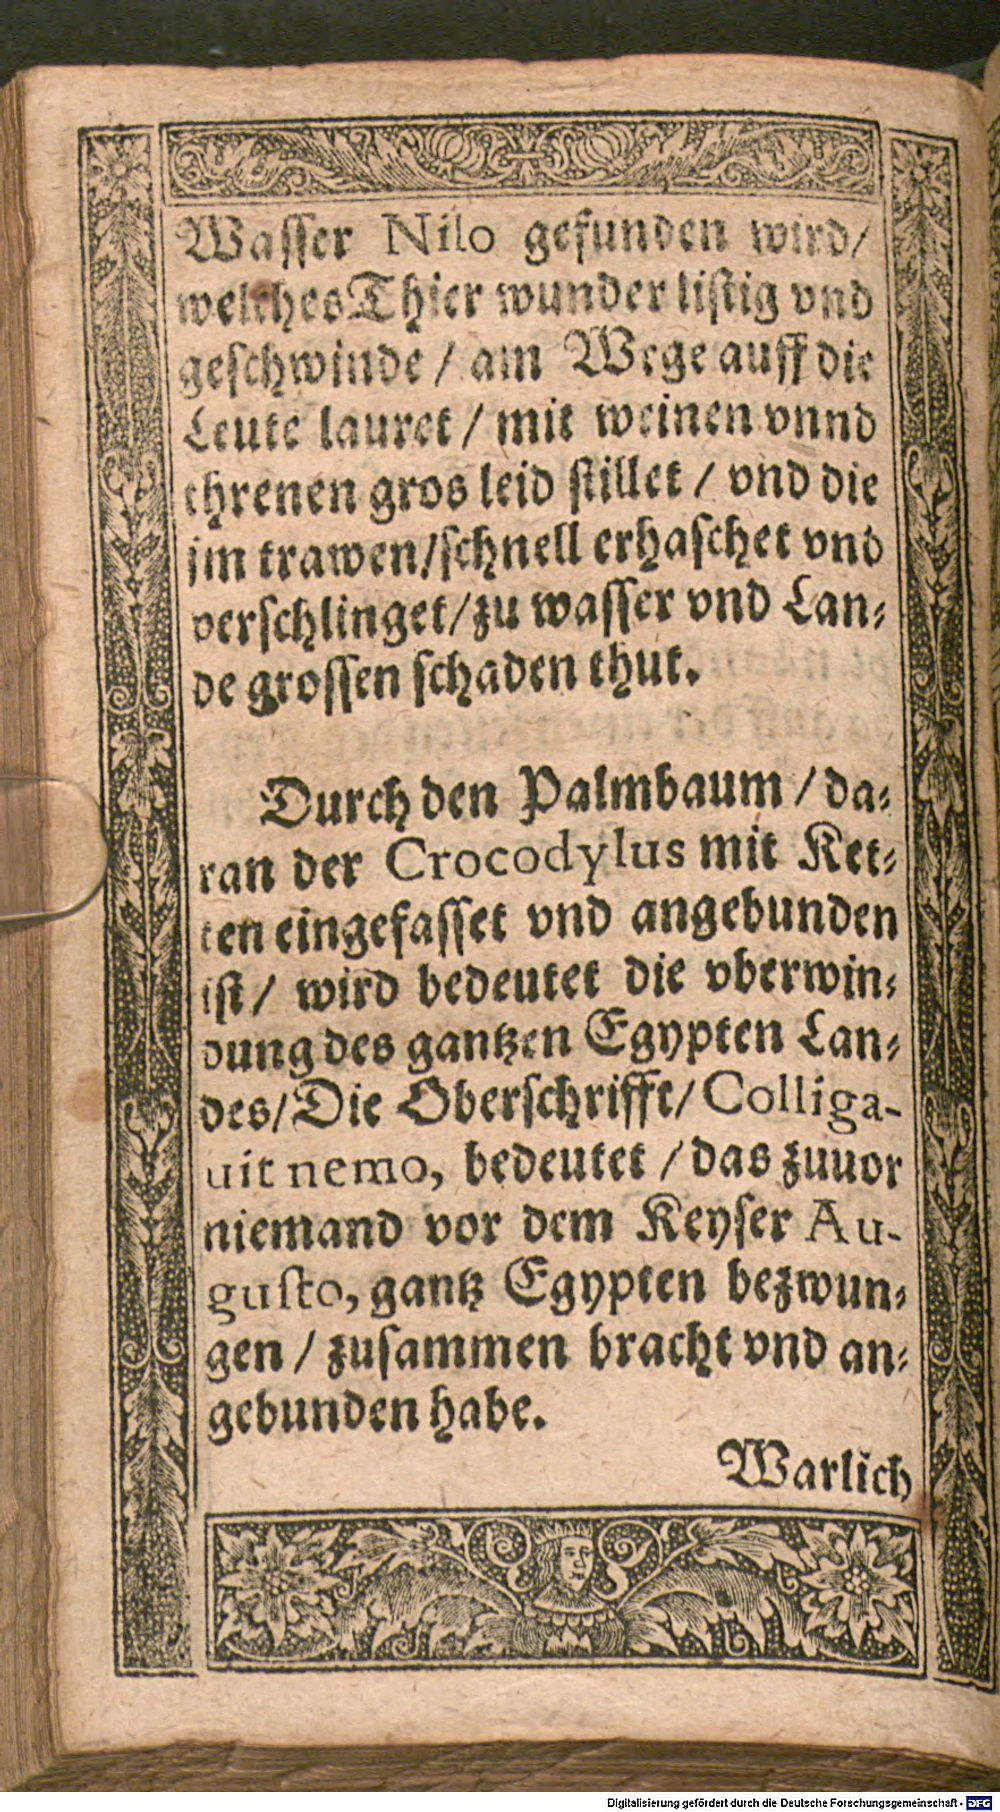 Wasser Nilo gefunden wird/
welches Thier wunder listig vnd
geschwinde / am Wege auff die
Leute lauret / mit weinen vnnd
threnen gros leid stillet / vnd die
jm trawen/schnell erhaschet vnd
verschlinget/zu wasser vnd Lan-
de grossen schaden thut.
Durch den Palmbaum / da-
ran der Crocodylus mit Ket-
ten eingefasset vnd angebunden
ist/ wird bedeutet die vberwin-
dung des gantzen Egypten Lan-
des/Die Oberschrifft/Colliga-
uit nemo, bedeutet / das zuuor
niemand vor dem Keyser Au-
gusto, gantz Egypten bezwun-
gen / zusammen bracht vnd an-
gebunden habe.
Warlich
Digitalisierung gefördert durch die Deutsche Forschungsgemeinschaft - DFG